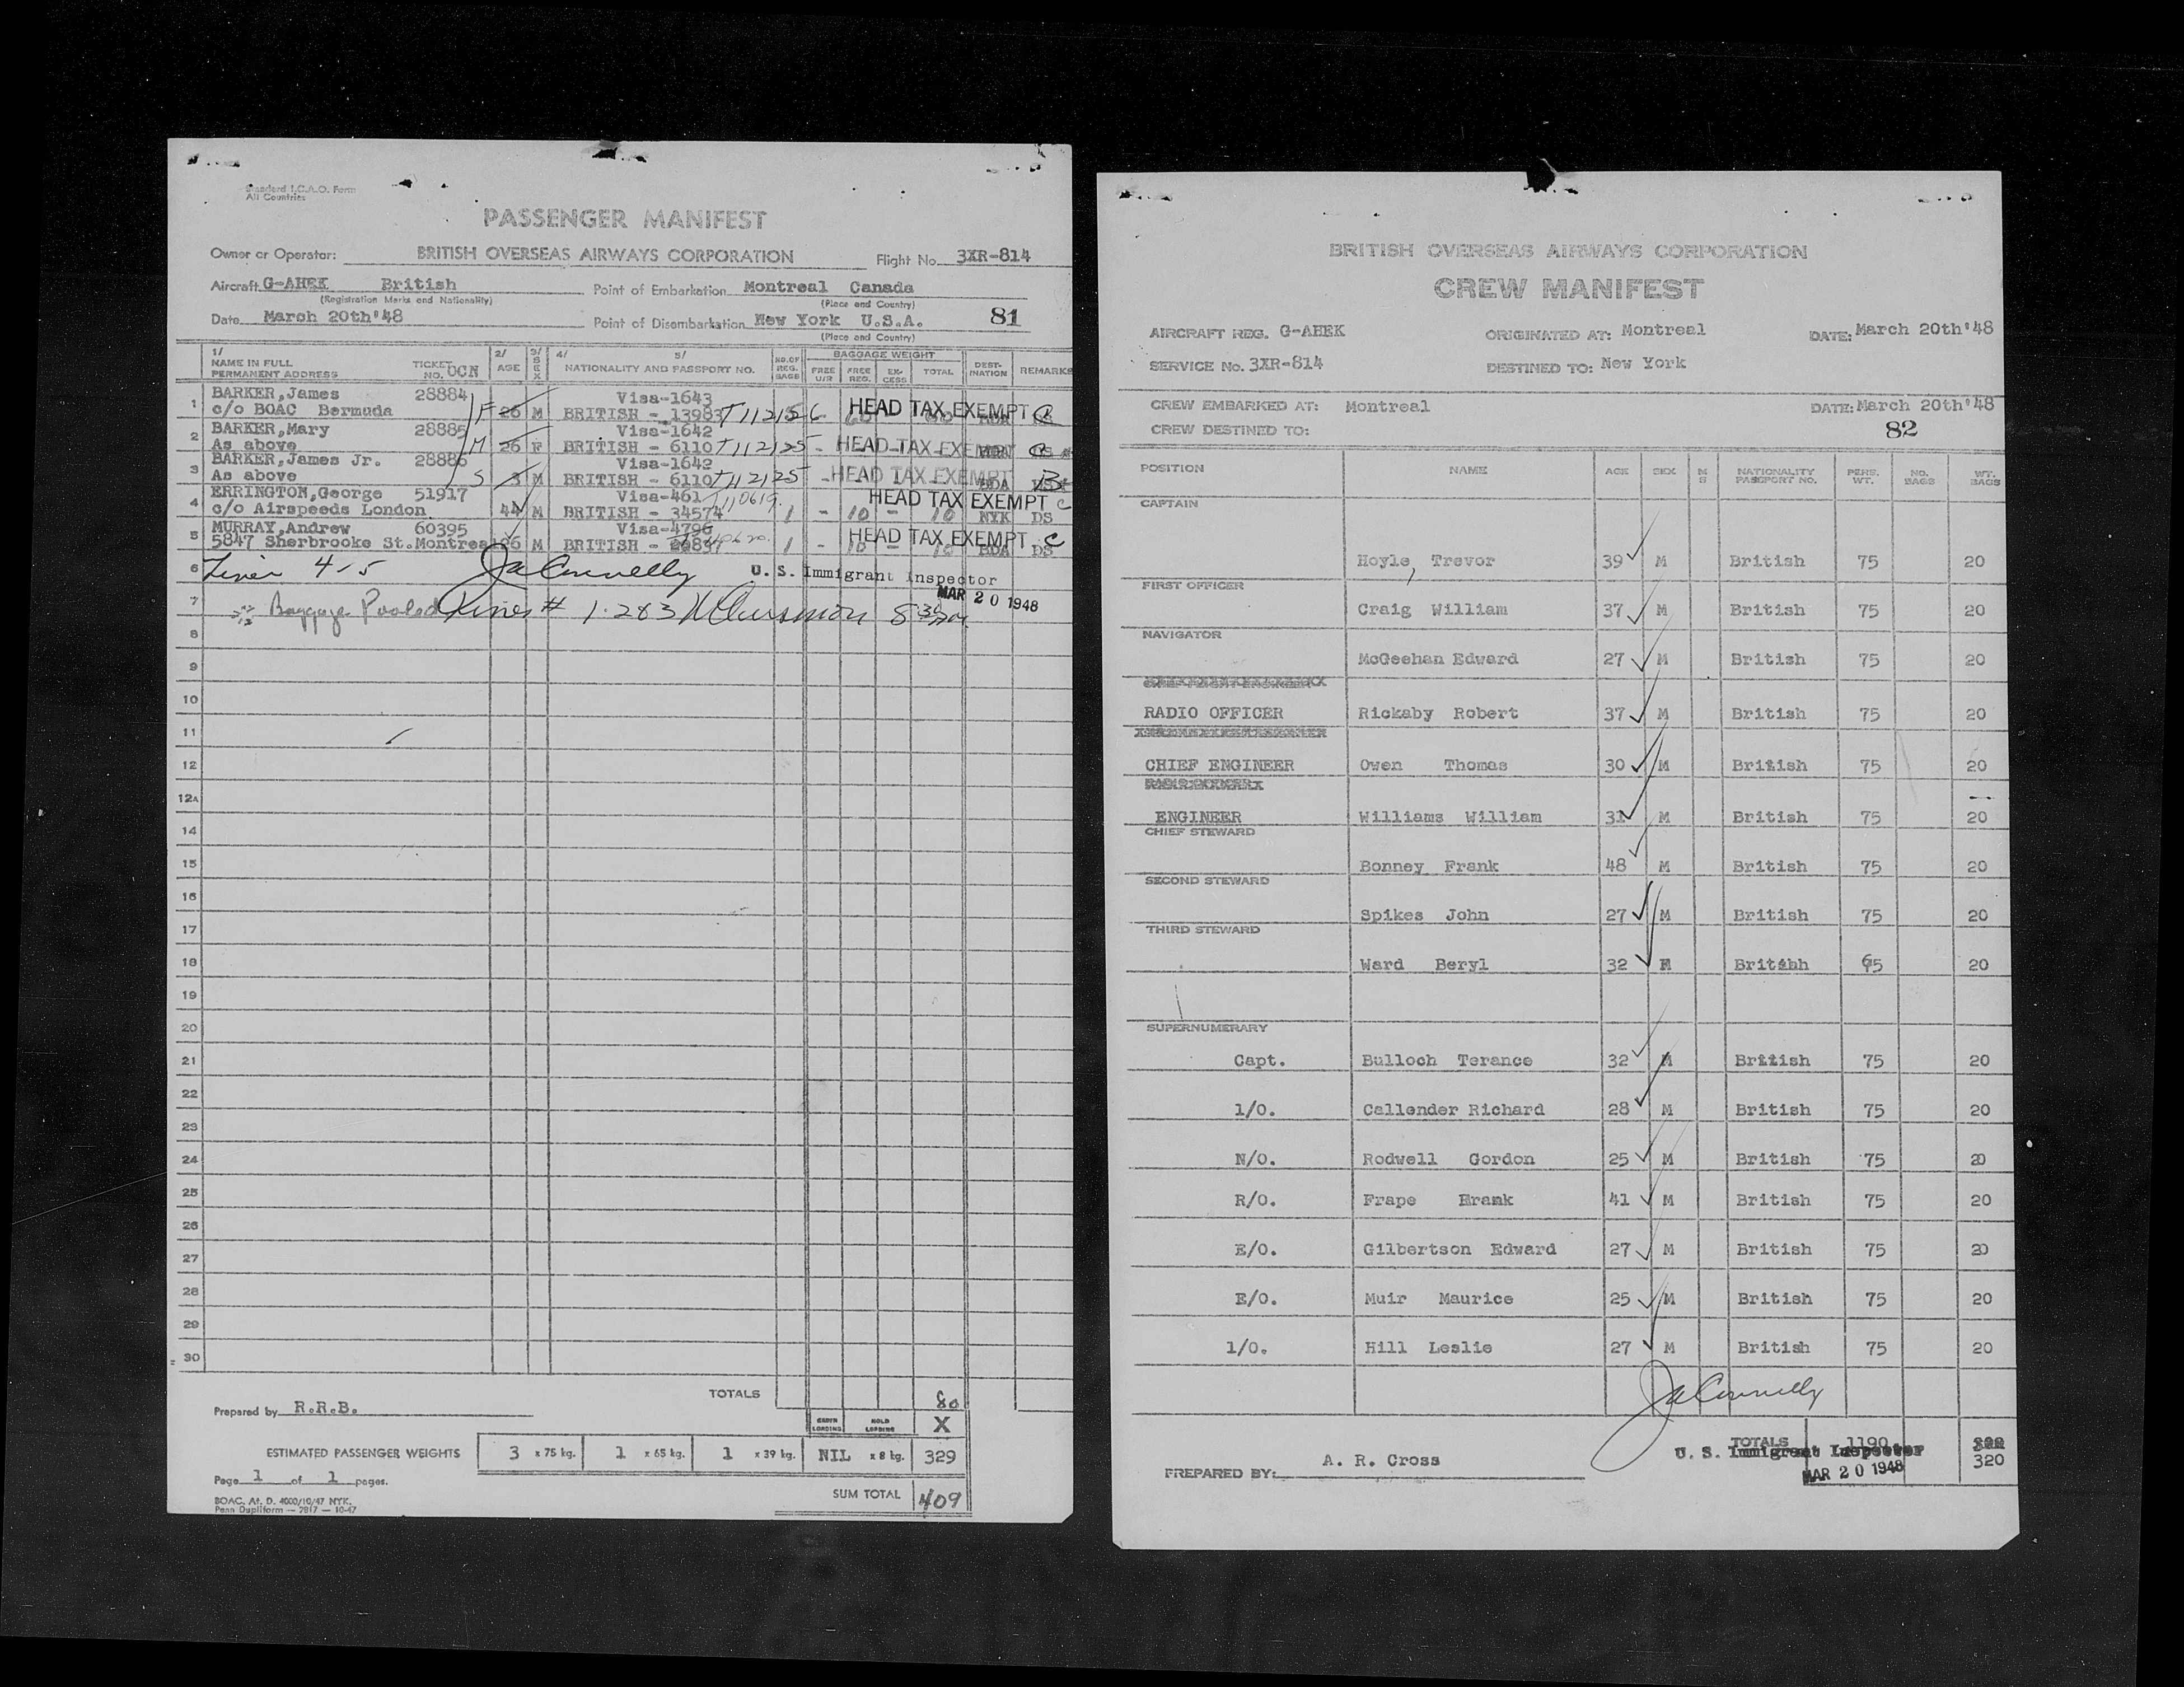 Standard I.C.A.O. Form
All Countries
PASSENGER MANIFEST
Owner or Operator: BRITISH OVERSEAS AIRWAYS CORPORATION Flight No. 3XR-814
Aircraft G-AHEK British Point of Embarkation Montreal Canada
(Registration Marks and Nationality) (Place and Country)
Date March 20th'48 Point of Disembarkation New York U.S.A. 81
(Place and Country)
1/ NAME IN FULL PERMANENT ADDRESS TICKET NO. UCN 2/ AGE 3/ SEX 4/ 5/ NATIONALITY AND PASSPORT NO. NO. OF REG. BAGS BAGGAGE WEIGHT FREE U/R FREE REG. EX-CESS TOTAL DEST-INATION REMARKS
1 BARKER, James 28884 Visa-1643
c/o BOAC Bermuda F 26 M BRITISH - 13983 T112156 HEAD TAX EXEMPT
2 BARKER, Mary 28885 Visa-1642
As above M 26 F BRITISH - 6110 T112125 - HEAD TAX EXEMPT
3 BARKER, James Jr. 28886 Visa-1642
As above S 3 M BRITISH - 6110 T112125 - HEAD TAX EXEMPT BDA
4 ERRINGTON, George 51917 Visa-461 T110619 HEAD TAX EXEMPT C
c/o Airspeeds London 44 M BRITISH - 34574 1 - 10 - 10 NYK DS
5 MURRAY, Andrew 60395 Visa-4796 HEAD TAX EXEMPT C
5847 Sherbrooke St. Montreal 26 M BRITISH - 1 - 10 - 10 BDA DS
6 Lines 4-5 JaConnelly U. S. Immigrant Inspector
MAR 20 1948
7 Baggage Pooled Lines # 1-2&3
8
9
10
11
12
12A
14
15
16
17
18
19
20
21
22
23
24
25
26
27
28
29
30
TOTALS 80
Prepared by R.R.B.
CABIN LOADING HOLD LOADING X
ESTIMATED PASSENGER WEIGHTS 3 x 75 kg. 1 x 65 kg. 1 x 39 kg. NIL x 8 kg. 329
Page 1 of 1 pages.
SUM TOTAL 409
BOAC. At. D. 4000/10/47 NYK.
Penn Dupliform — 7917 — 10-47
BRITISH OVERSEAS AIRWAYS CORPORATION
CREW MANIFEST
AIRCRAFT REG. G-AHEK ORIGINATED AT: Montreal DATE: March 20th'48
SERVICE No. 3XR-814 DESTINED TO: New York
CREW EMBARKED AT: Montreal DATE: March 20th'48
CREW DESTINED TO: 82
POSITION NAME AGE SEX M S NATIONALITY PASSPORT NO. PERS. WT. NO. BAGS WT. BAGS
CAPTAIN
Hoyle, Trevor 39 M British 75 20
FIRST OFFICER
Craig William 37 M British 75 20
NAVIGATOR
McGeehan Edward 27 M British 75 20
RADIO OFFICER Rickaby Robert 37 M British 75 20
CHIEF ENGINEER Owen Thomas 30 M British 75 20
ENGINEER Williams William 31 M British 75 20
CHIEF STEWARD
Bonney Frank 48 M British 75 20
SECOND STEWARD
Spikes John 27 M British 75 20
THIRD STEWARD
Ward Beryl 32 F Britsbh 65 20
SUPERNUMERARY
Capt. Bulloch Terance 32 M British 75 20
1/O. Callender Richard 28 M British 75 20
N/O. Rodwell Gordon 25 M British 75 20
R/O. Frape Frank 41 M British 75 20
E/O. Gilbertson Edward 27 M British 75 20
E/O. Muir Maurice 25 M British 75 20
1/O. Hill Leslie 27 M British 75 20
JaConnelly
TOTALS 1190
U. S. Immigrant Inspector 320
MAR 20 1948
PREPARED BY: A. R. Cross